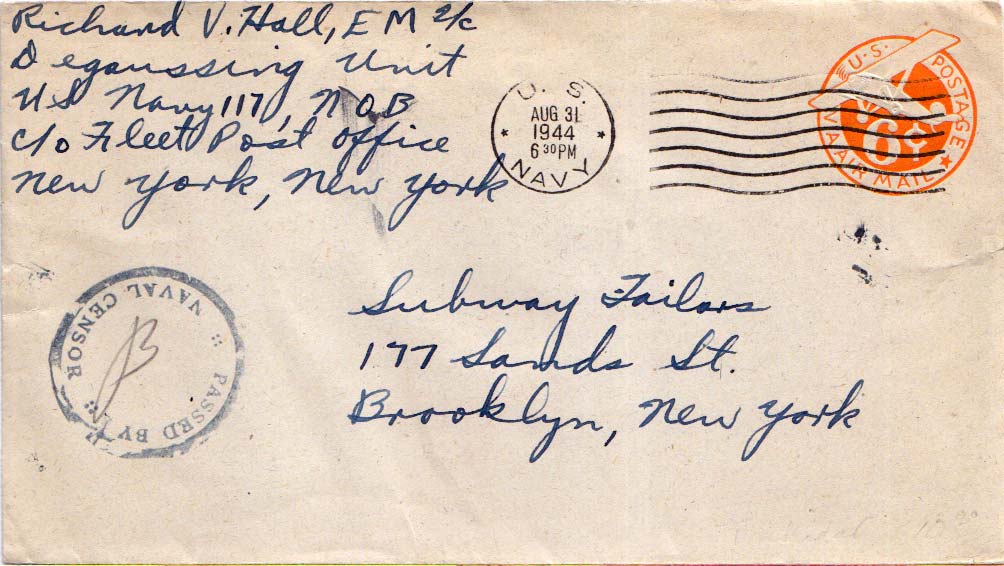 Richard V. Hall, EM 2/c
Degaussing Unit
US Navy 117, NOB
c/o Fleet Post Office
New York, New York
U. S.
AUG 31
1944
6 30 PM
NAVY
U.S. POSTAGE
6¢
VIA AIR MAIL
PASSED BY
NAVAL CENSOR
Subway Tailors
177 Sands St.
Brooklyn, New York